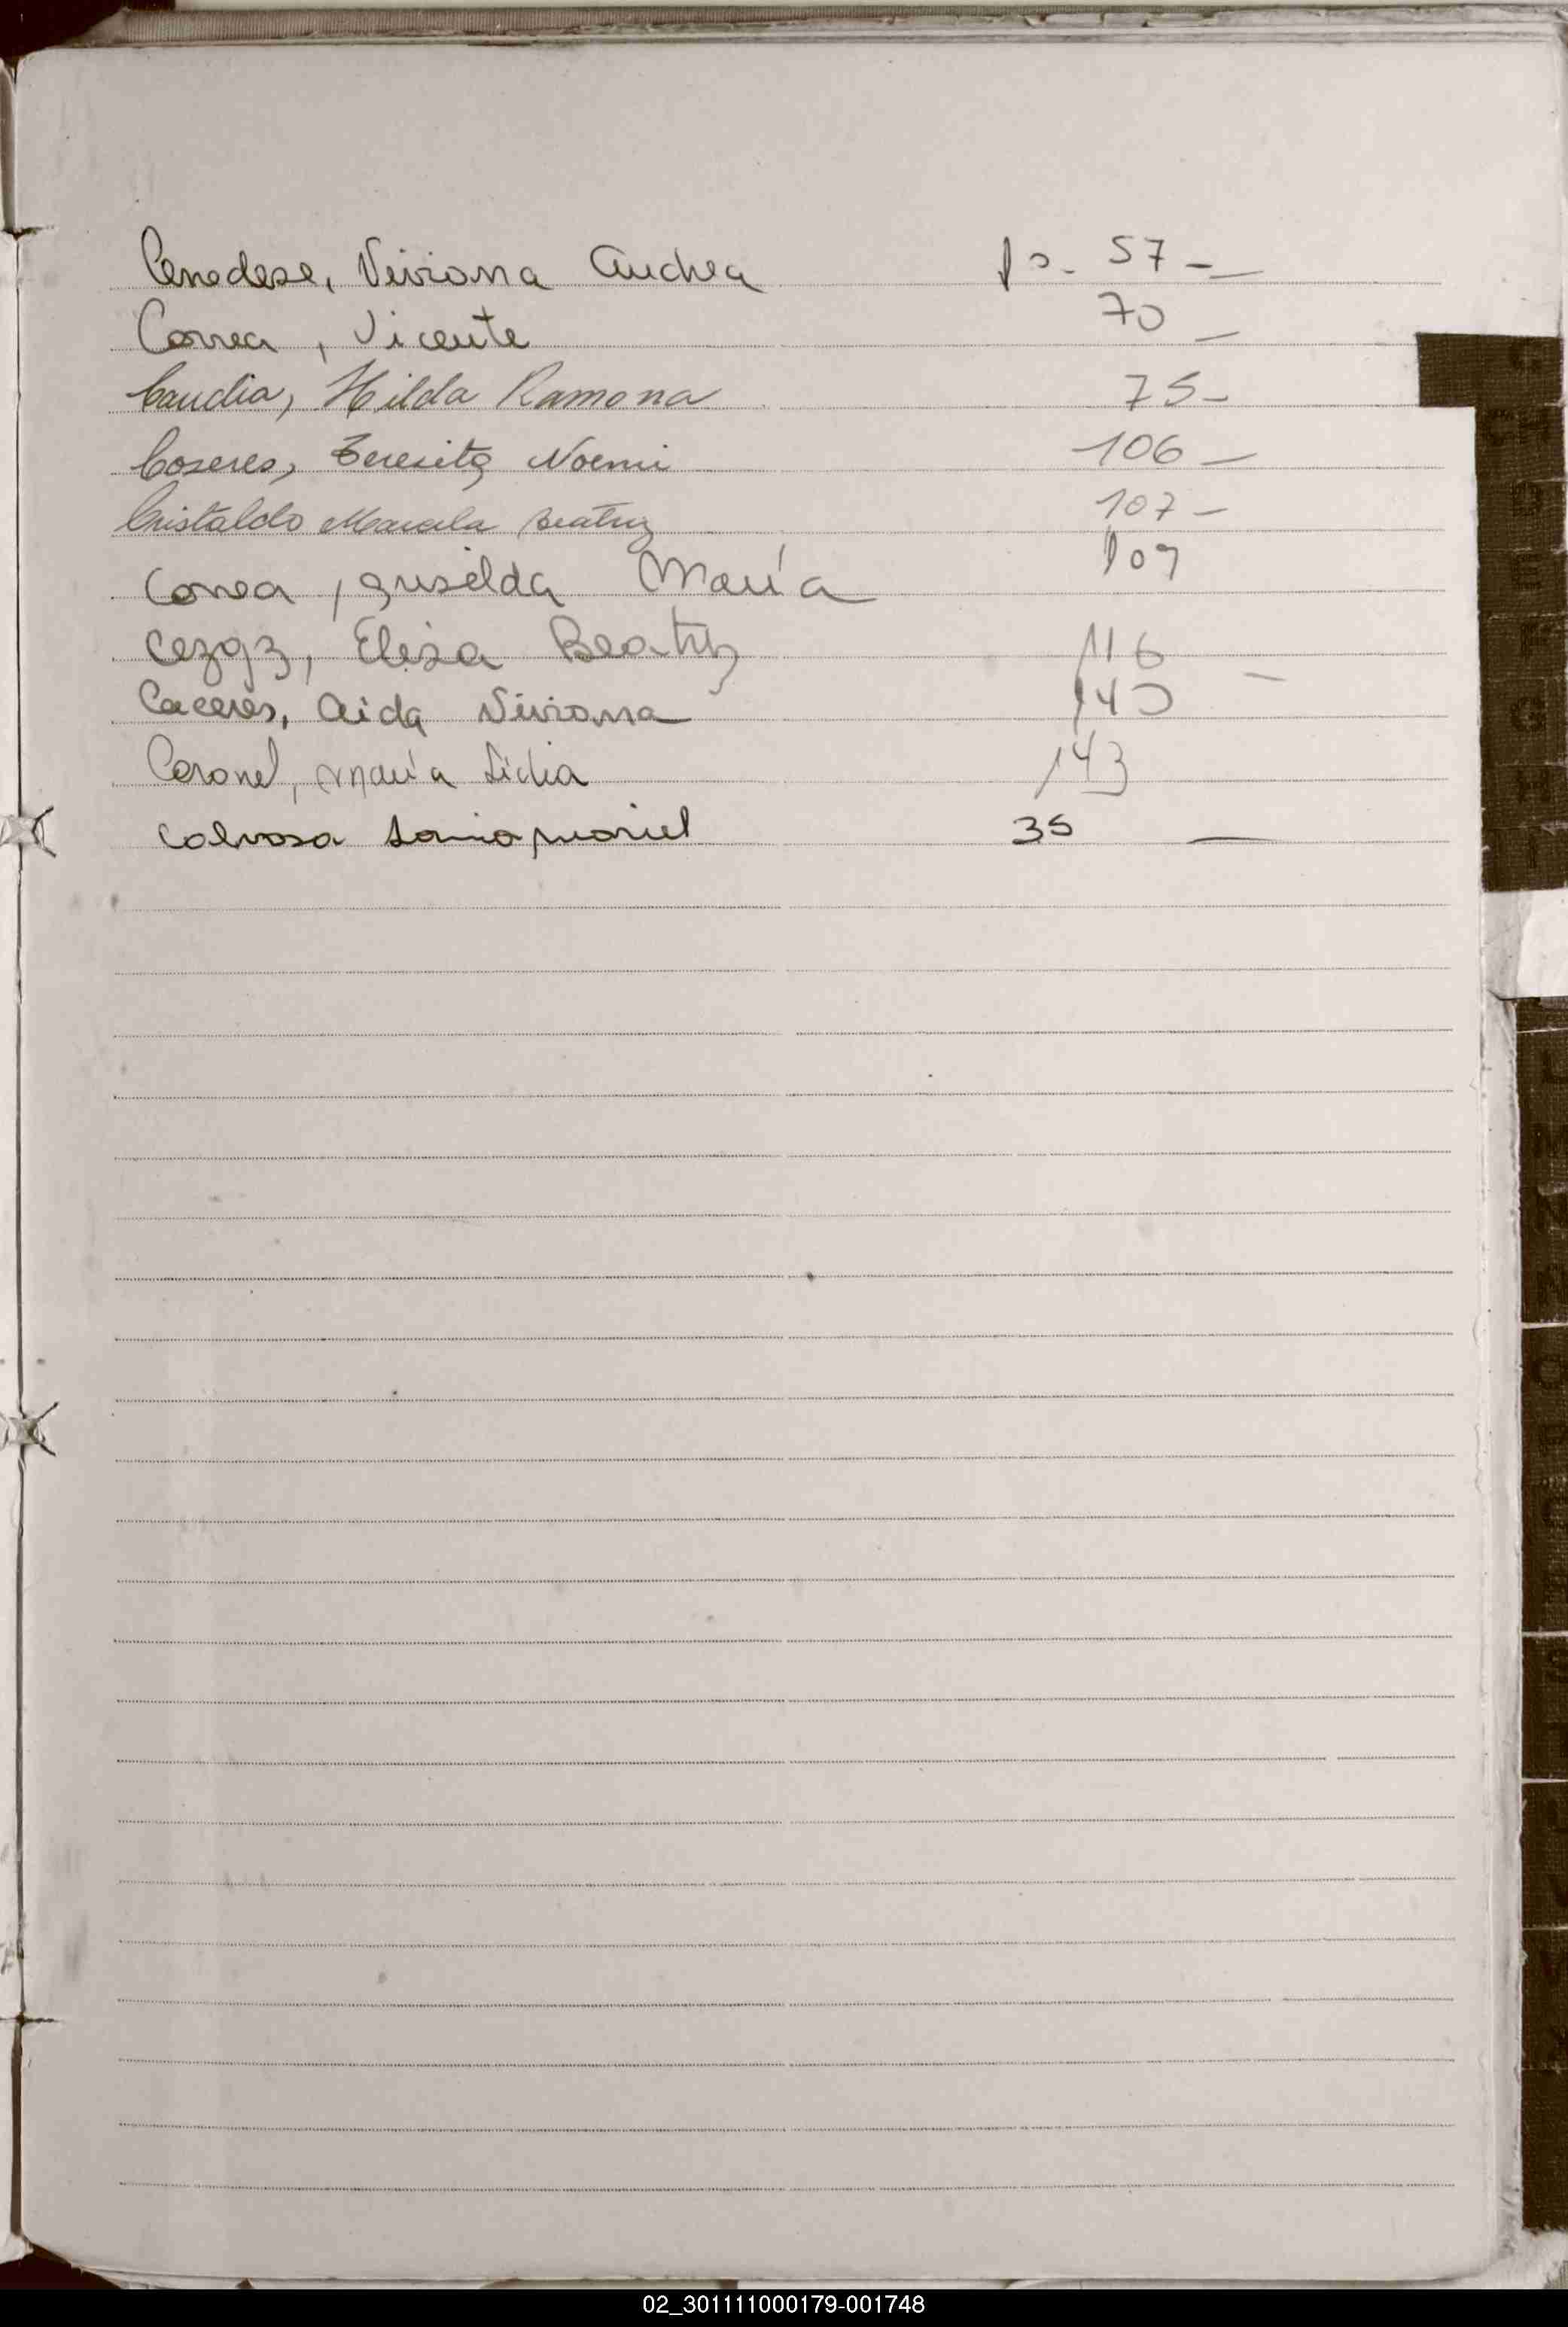 Cenedese, Viviana Andrea 57 -
Correa, Vicente 70 -
Candia, Hilda Ramona 75 -
Caseres, Teresita Noemi 106 -
Cristaldo Marcela Beatriz 107 -
Correa, Griselda María 109
Elisa Beatriz 116 -
Caceres, Aida Viviana 140
Coronel, María Lidia 143
Calvosa Sonia Mariel 35 -
02_301111000179-001748